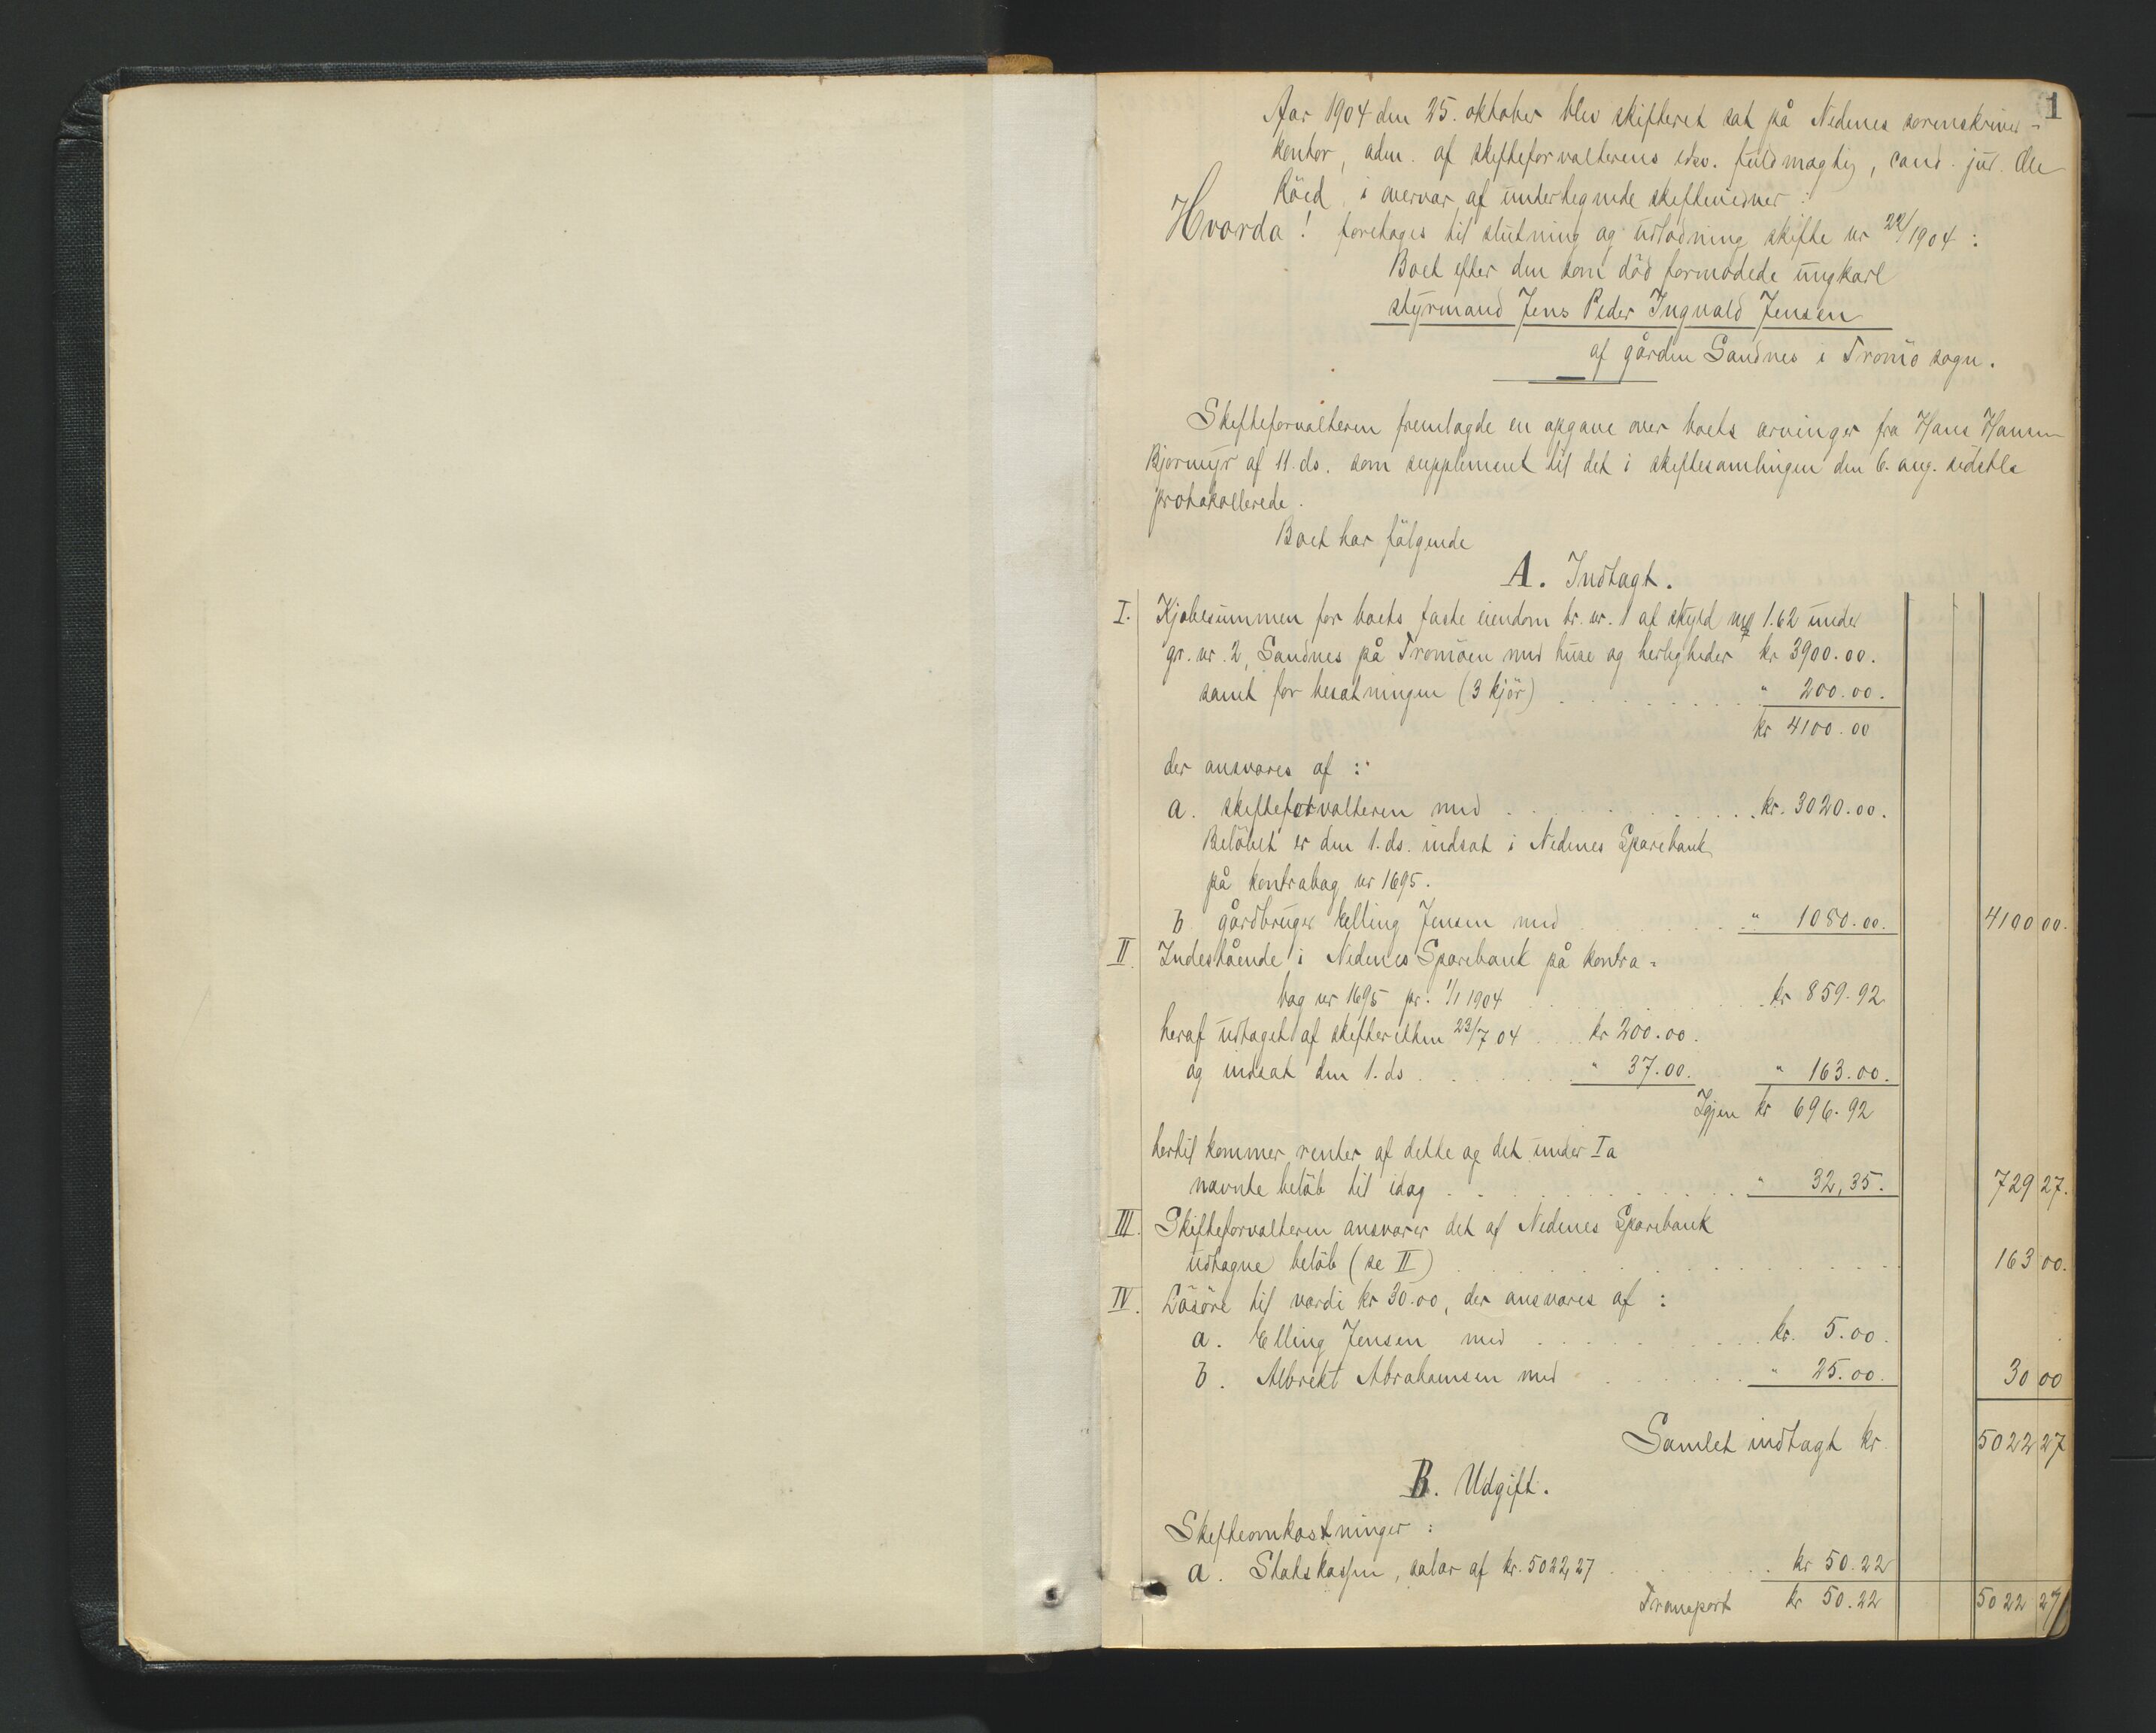 1
Aar 1904 den 25. oktober blev skifteret sat på Nedenes sorenskriver-
kontor, adm. af skifteforvalterens edsv. fuldmægtig, cand. jur. Ole
Röed i overvær af undertegnede skiftevidner:
Hvorda! foretoges til slutning og udlodning skifte nr 22/1904:
Boet efter den som död formodede ungkarl
styrmand Jens Peder Ingvald Jensen
af gården Sandnes i Tromö sogn.
Skifteforvalteren fremlagde en opgave over boets arvinger fra Hans Hansen
Bjormyr af 11. ds. som supplement til det i skiftesamlingen den 6. aug. sidstl.
protokollerede.
Boet har fölgende
A. Indtægt.
I. Kjöbesummen for boets faste eiendom br. nr. 1 af skyld 1.62 under
gr. nr. 2, Sandnes på Tromöen med huse og herligheder kr 3900.00.
samt for besætningen (3 kjör) . . . " 200.00.
kr 4100.00
der ansvares af :
a. skifteforvalteren med . . . kr. 3020.00.
Belöbet er den 1. ds. indsat i Nedenes Sparebank
på kontrabog nr 1695.
b gårdbruger Elling Jensen med . . . " 1080.00. 4100 00.
II. Indestående i Nedenes Sparebank på kontra-
bog nr 1695 pr. 1/1 1904 . . . kr 859.92
heraf udtaget af skifteretten 23/7 04 . . kr 200.00.
og indsat den 1. ds . . . " 37.00. " 163.00.
Igjen kr 696.92
hertil kommer renter af dette og det under Ia
nævnte belöb til idag . . . " 32,35. 729 27.
III. Skifteforvalteren ansvarer det af Nedenes Sparebank
udtagne belöb (se II) . . . 163 00.
IV. Lösöre til værdi kr 30.00, der ansvares af :
a. Elling Jensen med . . . kr. 5.00.
b. Albrekt Abrahamsen med . . . " 25.00. 30 00
Samlet indtægt kr. 5022 27
B. Udgift.
Skifteomkostninger :
a. Statskassen, salær af kr. 5022,27 . . . kr 50.22
Transport kr 50.22 5022 27